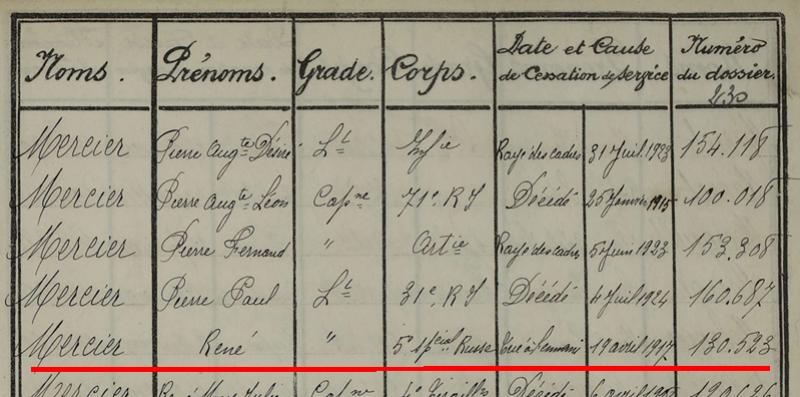 Noms. Prénoms. Grade. Corps. Date et Cause de Cessation de Service Numéro du dossier.
230
Mercier Pierre Aug^te Désiré L^t Inf^ie Rayé des cadres 31 Juil. 1923 154.118
Mercier Pierre Aug^te Léon Cap^ne 71^e. R I Décédé 25 Janvier 1915 100.018
Mercier Pierre Fernand " Art^ie Rayé des cadres 5 Juin 1923 153.308
Mercier Pierre Paul L^t 31^e. R I Décédé 4 Juil 1924 160.687
Mercier René " 5^e spécial Russe Tué à l'ennemi 19 avril 1917 130.523
Mercier Cap^ne Décédé